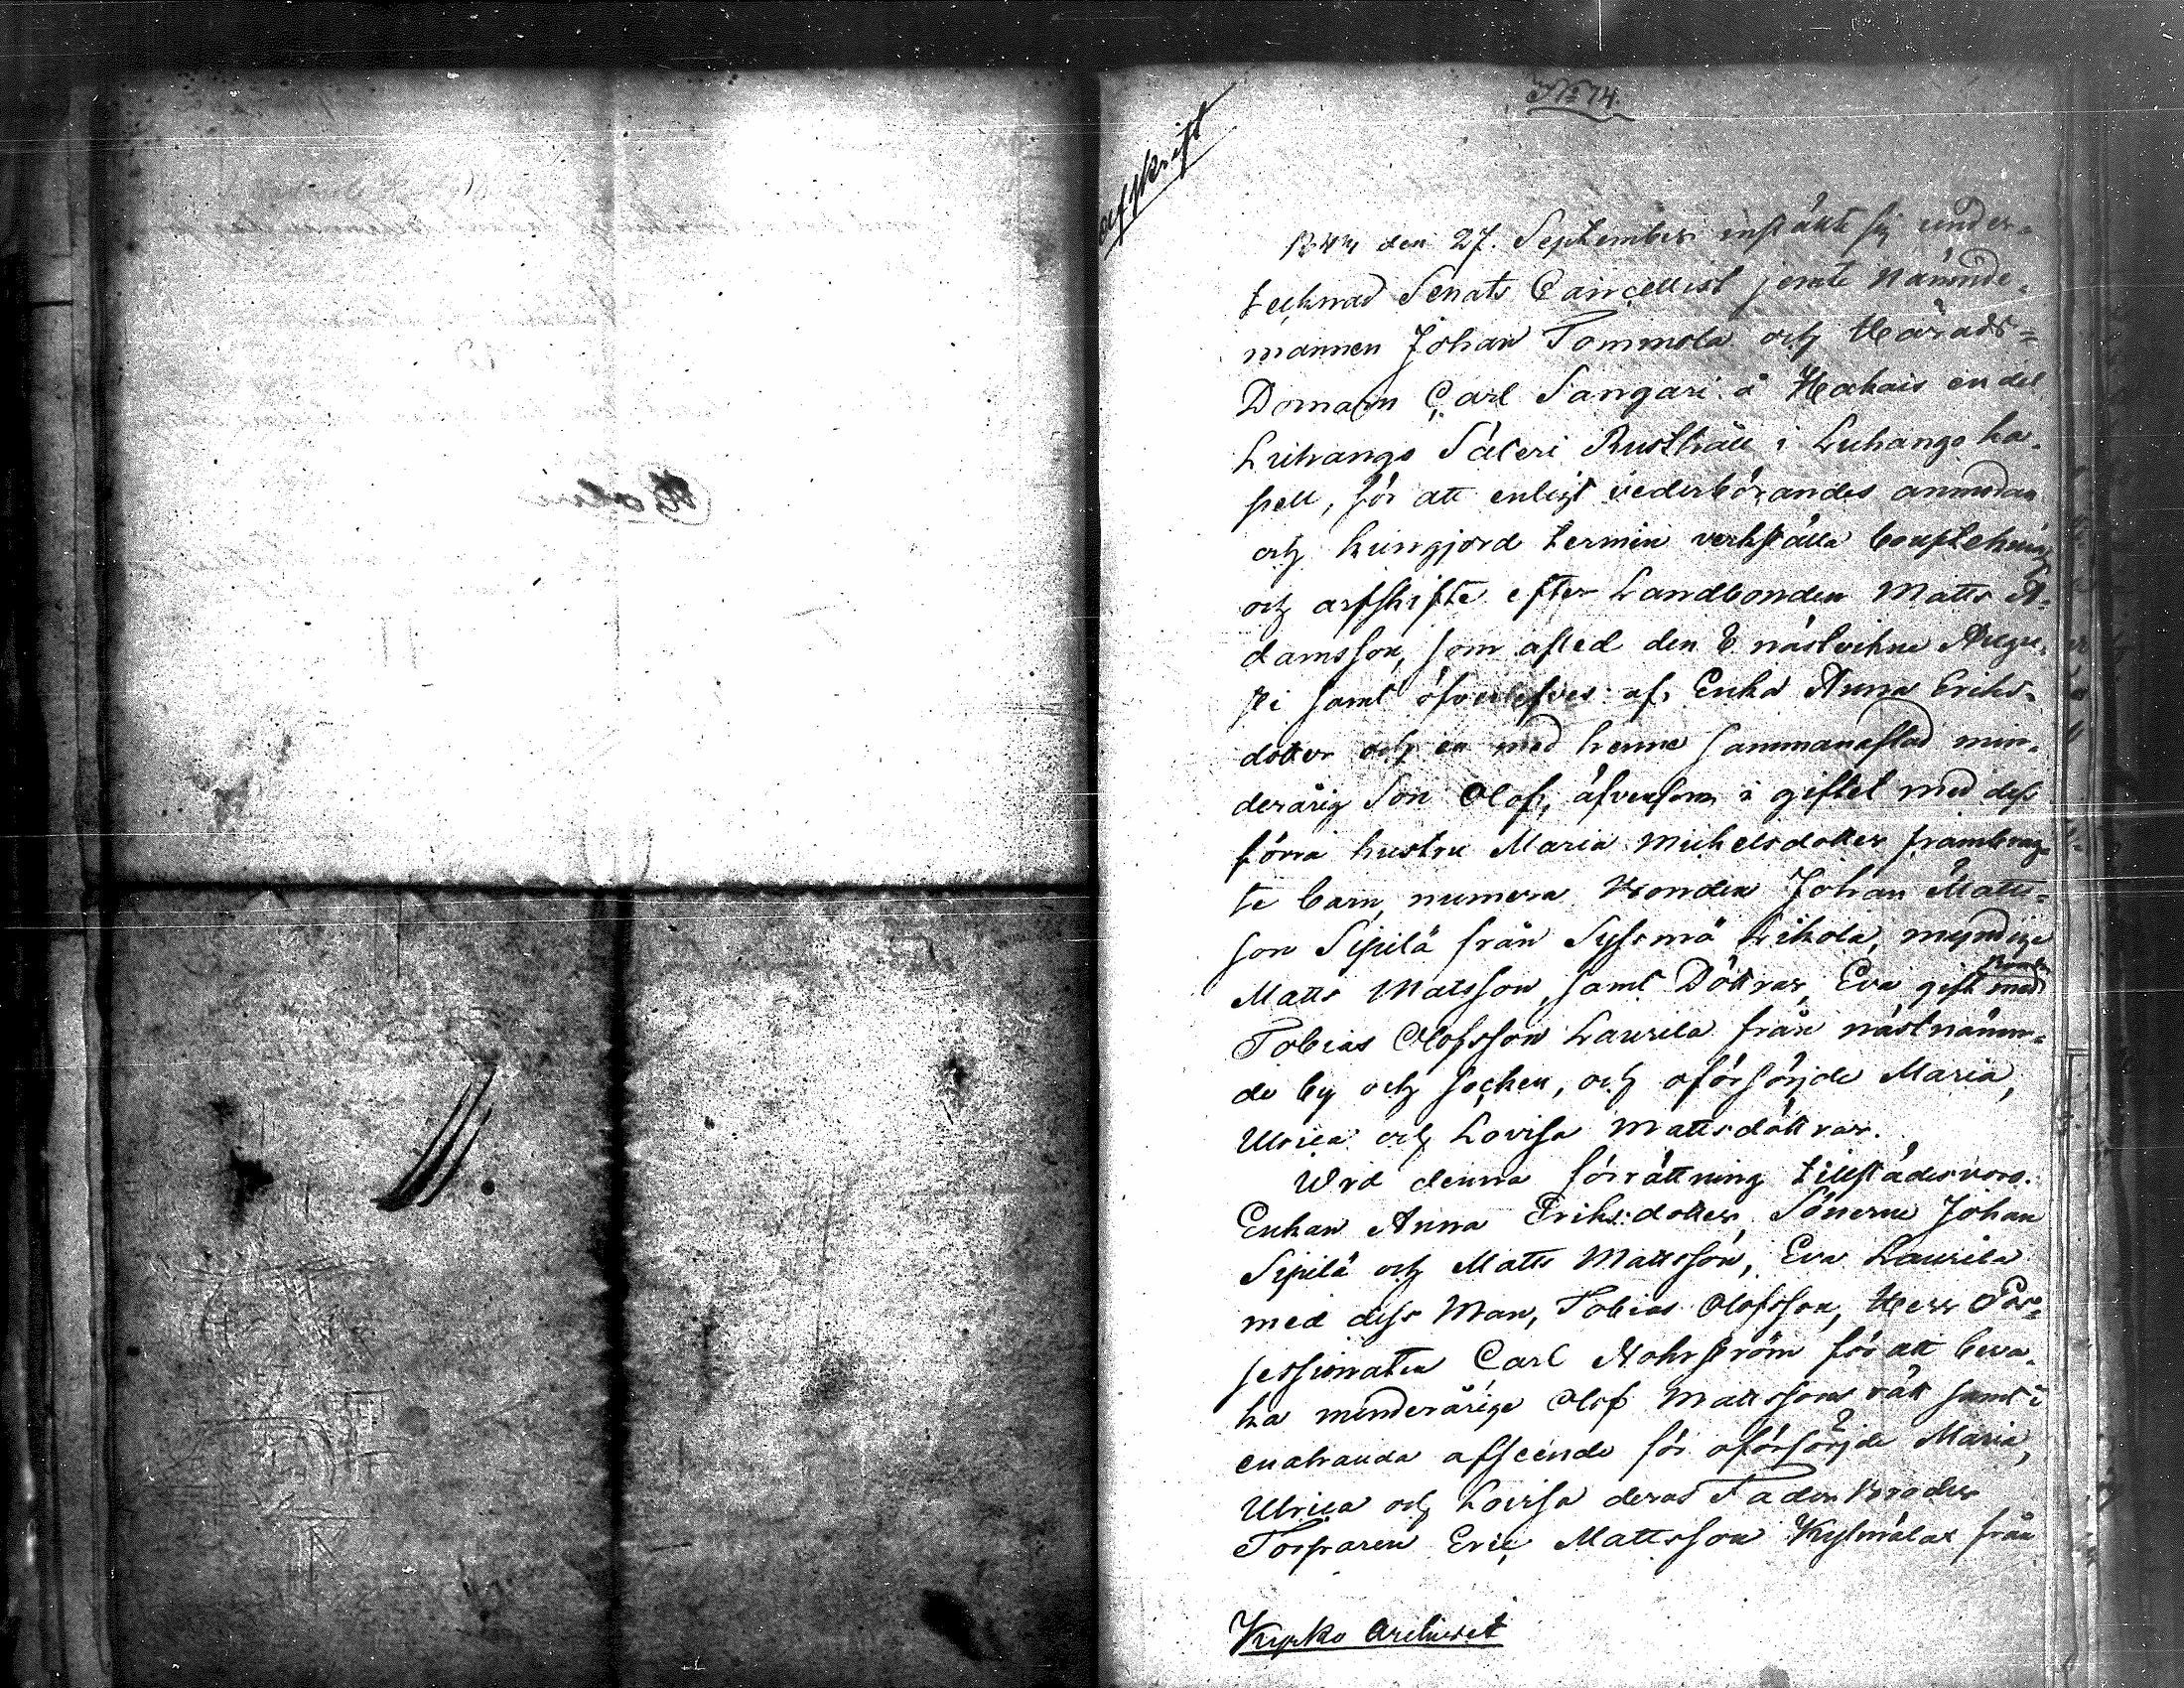 No 74.
afskrift
den 27. September instälte sig under-
tecknad Senats Cancellist jemte Nämnde-
mannen Johan Tommola och Härads-
Domarn Carl Sangari å Hakais en del
Luhango Säteri Rusthåll i Luhango ka-
pell, för att enligt vederbörandes anmodan
och kungjord termin verkställa bouptekning
och arfskifte efter Landbonden Matts A-
damsson, som afled den 6 nästvikne Augu-
sti samt öfverlefves af Enka Anna Eriks-
dotter och en med henne sammanaflad min-
derårig Son Olof, äfvensom i giftet med dess
förra hustru Maria Michelsdotter frambrag-
te barn numera Bonden Johan Matts-
son Sipilä från Syssmä Liikola, myndige
Matts Matsson, samt Döttrar, Eva gift med
Tobias Olofsson Laurila från nästnämn-
de by och socken, och oförsörjde Maria,
Ulrica och Lovisa Mattsdöttrar.
Wid denna förrättning tillstädesvoro.
Enkan Anna Eriksdotter, Sönerne Johan
Sipilä och Matts Mattsson, Eva Laurila
med dess Man, Tobias Olofsson, Herr Pos-
sessionaten Carl Nohrström för att beva-
ka minderårige Olof Mattssons rätt samt i
enahanda afseende för oförsörjde Maria,
Ulrica och Lovisa deras Faderbroder
Torparen Eric Mattsson Kylmälax från
Kyrko Archivet